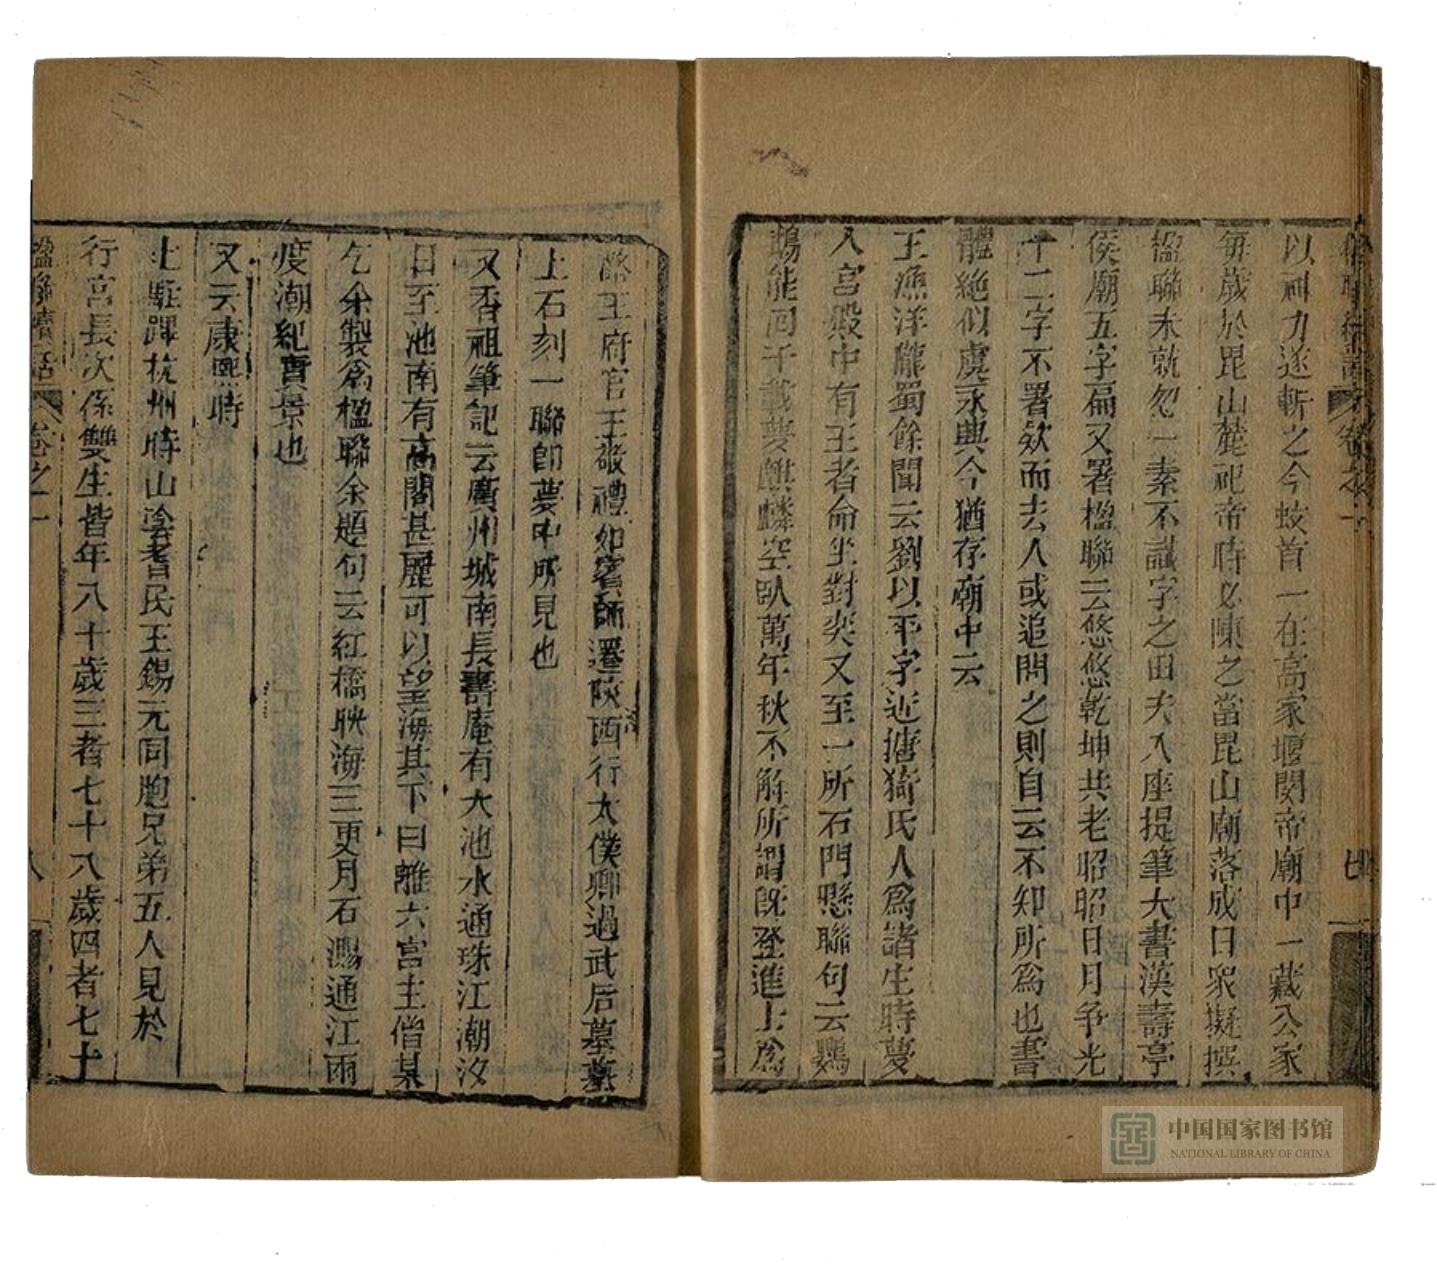 楹聯續話 卷之一
以神力遂斬之今蛟首一在高家堰関帝廟中一藏公家
每歲於毘山麓祀帝時必陳之當毘山廟落成日衆擬撰
楹聯未就忽一素不識字之田夫入座提筆大書漢壽亭
侯廟五字扁又署楹聯云悠悠乾坤共老昭昭日月争光
十二字不署欵而去人或追問之則自云不知所爲也書
體絶似虞永興今猶存廟中云
王漁洋隴蜀餘聞云劉以平字近塘猗氏人爲諸生時夢
入宮殿中有王者命坐對奕又至一所石門懸聯句云鸚
鵡能回千載夢麒麟空臥萬年秋不解所謂旣登進士爲
潞王府官王敬禮如賓師遷陝西行太僕卿過武后墓墓
上石刻一聯卽夢中所見也
又香祖筆記云廣州城南長壽庵有大池水通珠江潮汐
日至池南有高閣甚麗可以望海其下曰離六宮主僧某
乞余製爲楹聯余題句云紅橋映海三更月石㵼通江兩
度潮紀實景也
又云康熙時
上駐蹕杭州時山陰耆民王錫元同胞兄弟五人見於
行宮長次係雙生皆年八十歲三者七十八歲四者七十
楹聯續話 卷之一 八
中国国家图书馆
NATIONAL LIBRARY OF CHINA